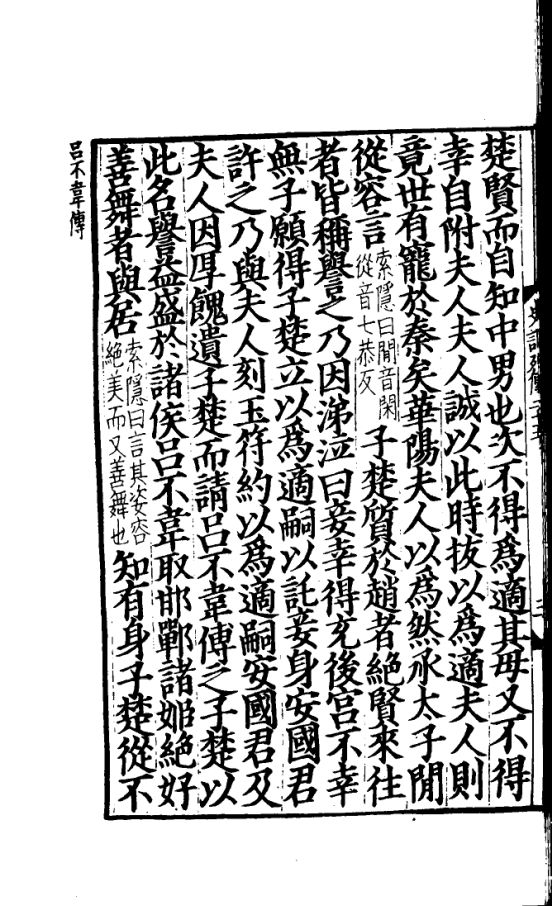 楚賢而自知中男也次不得爲適其母又不得
幸自附夫人夫人誠以此時拔以爲適夫人則
竟世有寵於秦矣華陽夫人以爲然承太子閒
從容言索隱曰閒音閑從音七恭反子楚質於趙者絶賢來往
者皆稱譽之乃因涕泣曰妾幸得充後宮不幸
無子願得子楚立以爲適嗣以託妾身安國君
許之乃與夫人刻玉符約以爲適嗣安國君及
夫人因厚餽遺子楚而請呂不韋傅之子楚以
此名譽益盛於諸侯呂不韋取邯鄲諸姬絶好
善舞者與居索隱曰言其姿容絶美而又善舞也知有身子楚從不
呂不韋傳